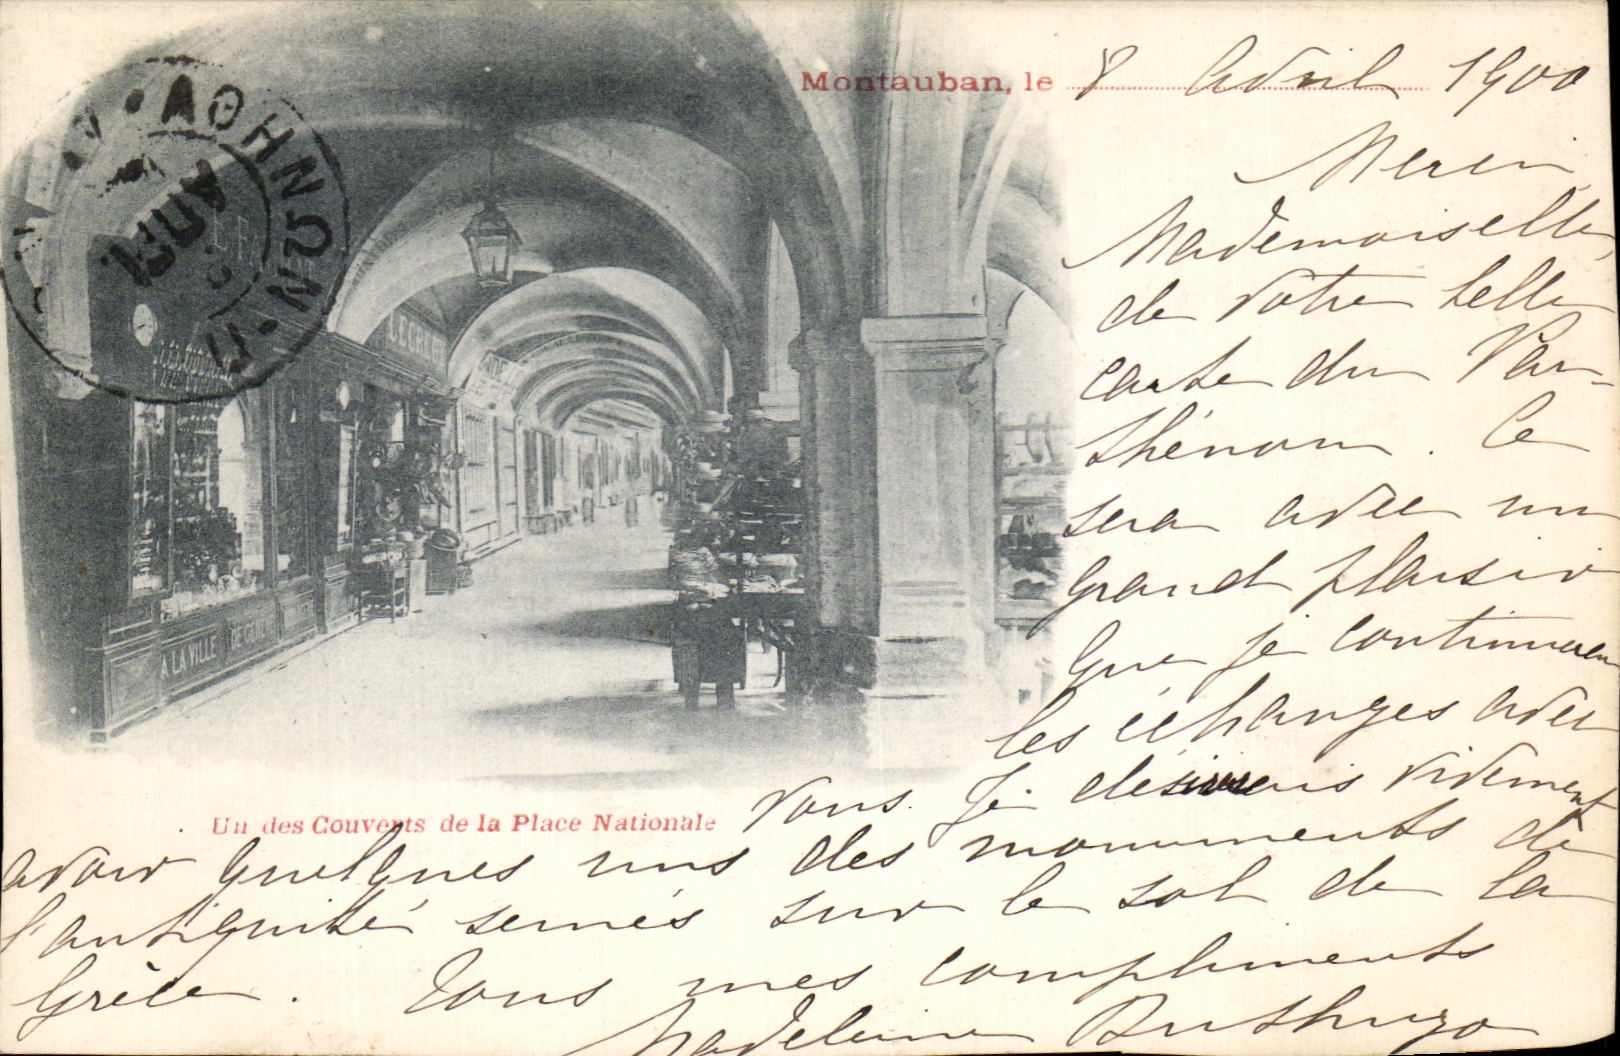 Montauban, le 8 Avril 1900
Merci,
Mademoiselle,
de votre belle
carte du Par-
thénon. Ce
sera avec un
grand plaisir
que je continuerai
les échanges avec
vous. Je désirerais vivement
avoir quelques uns des monuments de
l'antiquité semés sur le sol de la
Grèce. Tous mes compliments
Madeleine
Un des Couverts de la Place Nationale
ΑΘΗΝΩΝ · Π
ΑΠΡ
LECREUX
A LA VILLE DE